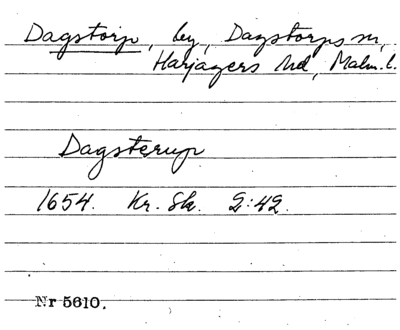 Dagstorp, by, Dagstorps sn,
Harjagers hd, Malm. l.
Dagsterup
1654. Kr. Sk. 2:42.
Nr 5610.